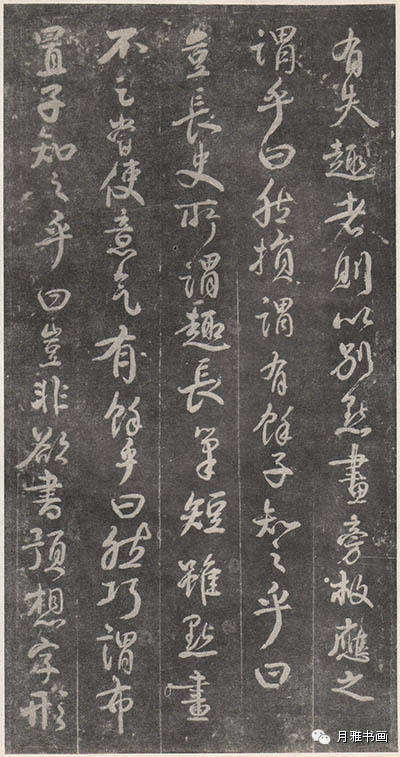 有失趣者則以別點畫旁救應之
謂乎曰然損謂有餘子知之乎曰
豈長史所謂趣長筆短雖點畫
不足常使意氣有餘乎曰然巧謂布
置子知之乎曰豈非欲書預想字形
月雅书画